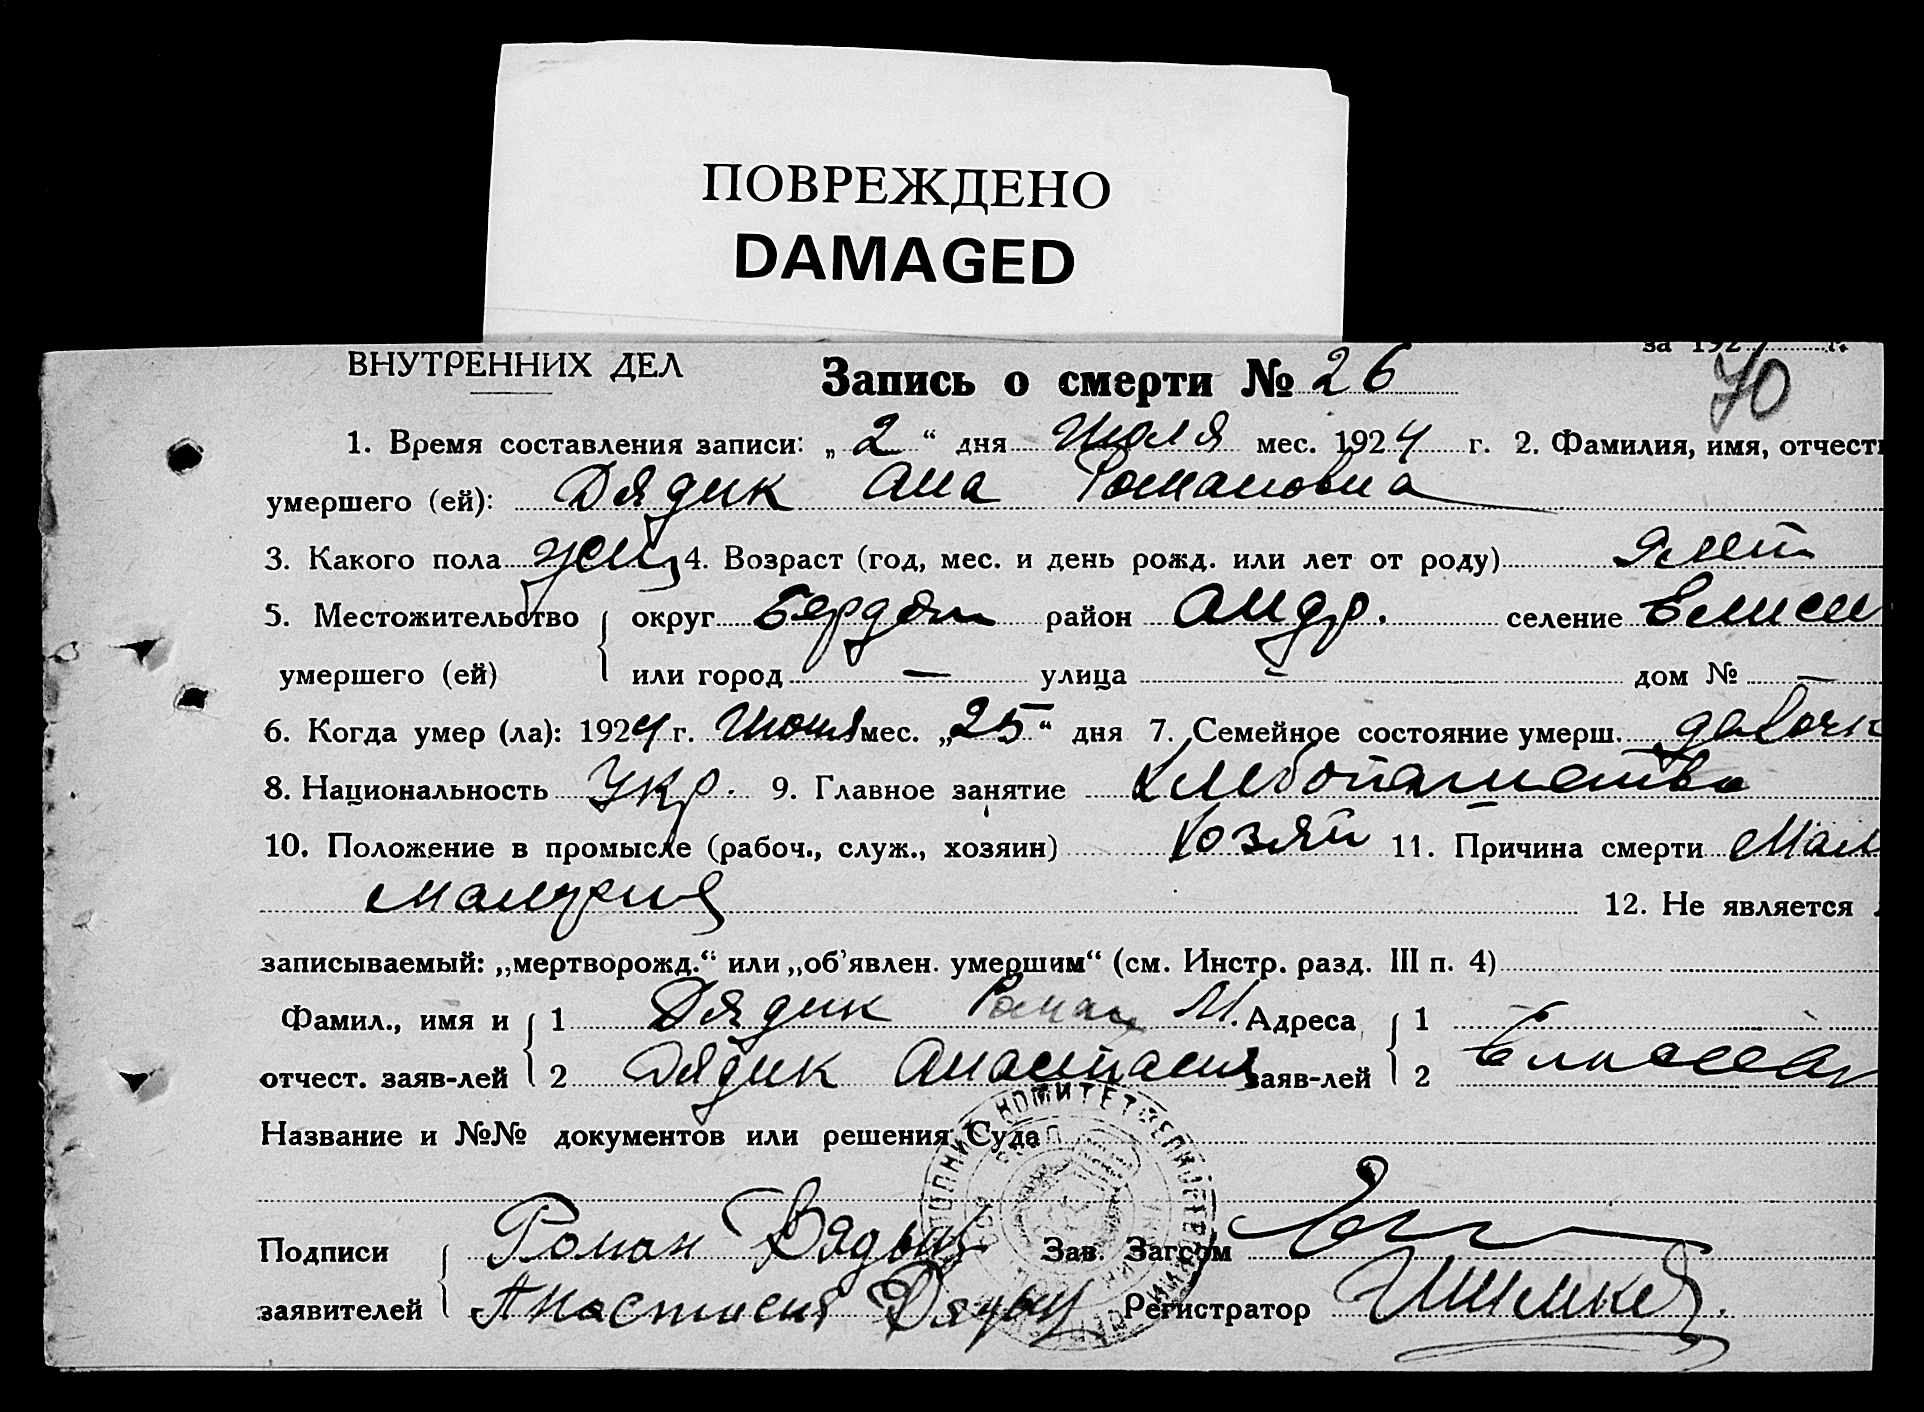 ПОВРЕЖДЕНО
DAMAGED
ВНУТРЕННИХ ДЕЛ
за 192 г.
Запись о смерти № 26
70
1. Время составления записи: „2“ дня Июля мес. 1924 г. 2. Фамилия, имя, отчест
умершего (ей): Дядик Ана Романовна
3. Какого пола жен 4. Возраст (год, мес. и день рожд. или лет от роду) лет
5. Местожительство округ Бердян район Андр. селение Елисе
умершего (ей) или город — улица - дом № —
6. Когда умер (ла): 1924 г. Июня мес. „25“ дня 7. Семейное состояние умерш.
8. Национальность Укр. 9. Главное занятие хлебопашество
10. Положение в промысле (рабоч., служ., хозяин) хозяй 11. Причина смерти Мал
12. Не является
записываемый: „мертворожд.“ или „об’явлен. умершим“ (см. Инстр. разд. III п. 4)
Фамил., имя и 1 Дядик Роман М. Адреса 1
отчест. заяв-лей 2 Дядик Анастасия заяв-лей 2
Название и №№ документов или решения Суда
Подписи Роман Зав. Загсом
заявителей Анастасия Регистратор